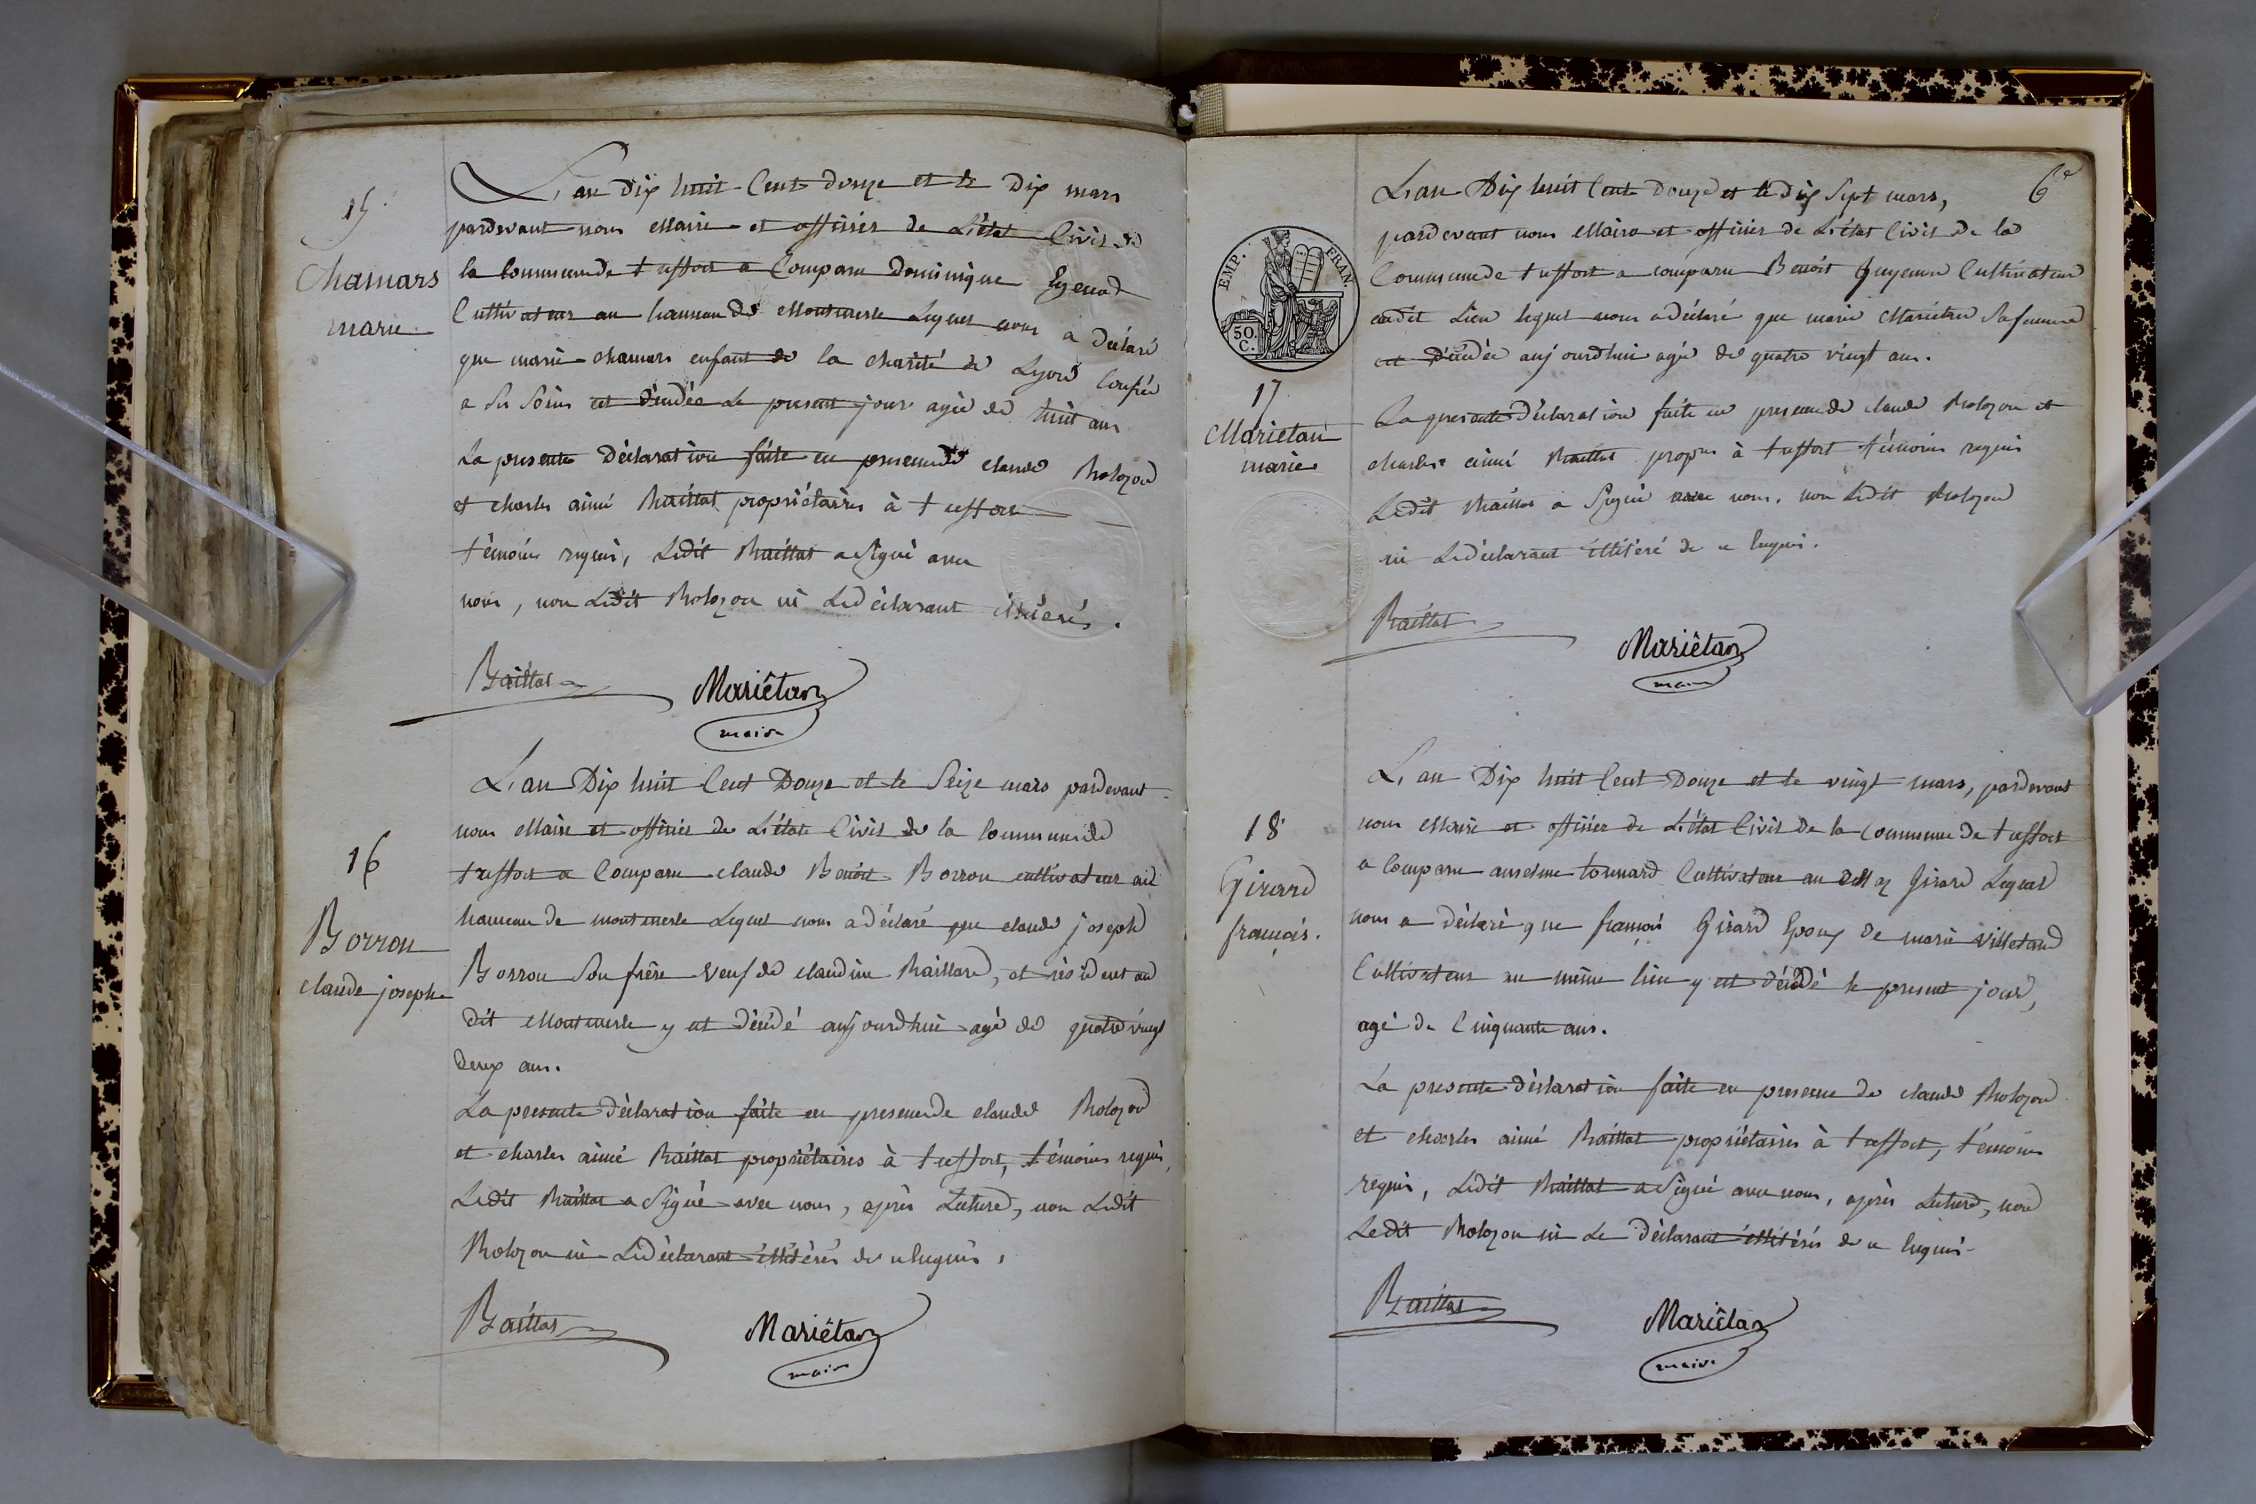 15
Chamars
marie
L'an Dix huit Cent douze et le Dix mars
pardevant nous Maire et officier de L'état Civil de
la Commune de treffort a Comparu Dominique
Cultivateur au hameau de Montmerle Lequel nous a déclaré
que marie chamars enfant de la charité de Lyon Confiée
a ses Soins est décédée Le present jour agée de huit ans
La presente Déclaration faite en presence de claude Rolozon
et charles aimé Raillat propriétaires à treffort
témoins requis, Ledit Raillat a Signé avec
nous, non Ledit Rolozon ni Ledéclarant illitérés.
Raillat Mariétan
maire
16
Borron
claude joseph
L'an Dix huit Cent Douze et le Seize mars pardevant
nous Maire et officier de L'état Civil de la Commune de
treffort a Comparu claude Benoit Borron cultivateur au
hameau de montmerle Lequel nous a déclaré que claude joseph
Borron Son frère veuf de claudine Raillard, et résident au
dit Montmerle y est décédé aujourdhui agé de quatre vingt
deux ans.
La presente déclaration faite en presence de claude Rolozon
et charles aimé Raillat propriétaires à treffort, témoins requis,
Ledit Raillat a Signé avec nous, après Lecture, non Ledit
Rolozon ni Ledéclarant illitérés de ce Enquis.
Raillat Mariétan
maire
6e
EMP. FRAN.
50
C.
17
Mariétan
marie
L'an Dix huit Cent Douze et le dix Sept mars,
pardevant nous Maire et officier de L'état Civil de la
Commune de treffort a comparu Benoit Guyenne Cultivateur
audit Lieu lequel nous a déclaré que marie Mariétan Sa femme
est décédée aujourdhui agée de quatre vingt ans.
La presente déclaration faite en presence de claude Rolozon et
charles aimé Raillat propres à treffort témoins requis
Ledit Raillat a Signé avec nous, non Ledit Rolozon
ni Ledéclarant illitéré de ce Enquis.
Raillat
Mariétan
maire
18
Girard
françois.
L'an Dix huit Cent Douze et le vingt mars, pardevant
nous Maire et officier de L'état Civil de la Commune de treffort
a Comparu anselme tonnard Cultivateur au Girard Lequel
nous a déclaré que françois Girard Epoux de marie villetand
Cultivateur au même lieu y est décédé le present jour,
agé de Cinquante ans.
La presente déclaration faite en presence de claude Rolozon
et charles aimé Raillat propriétaires à treffort, témoins
requis, Ledit Raillat a Signé avec nous, après Lecture, non
Ledit Rolozon ni Le Déclarant illitérés de ce Enquis.
Raillat
Mariétan
maire